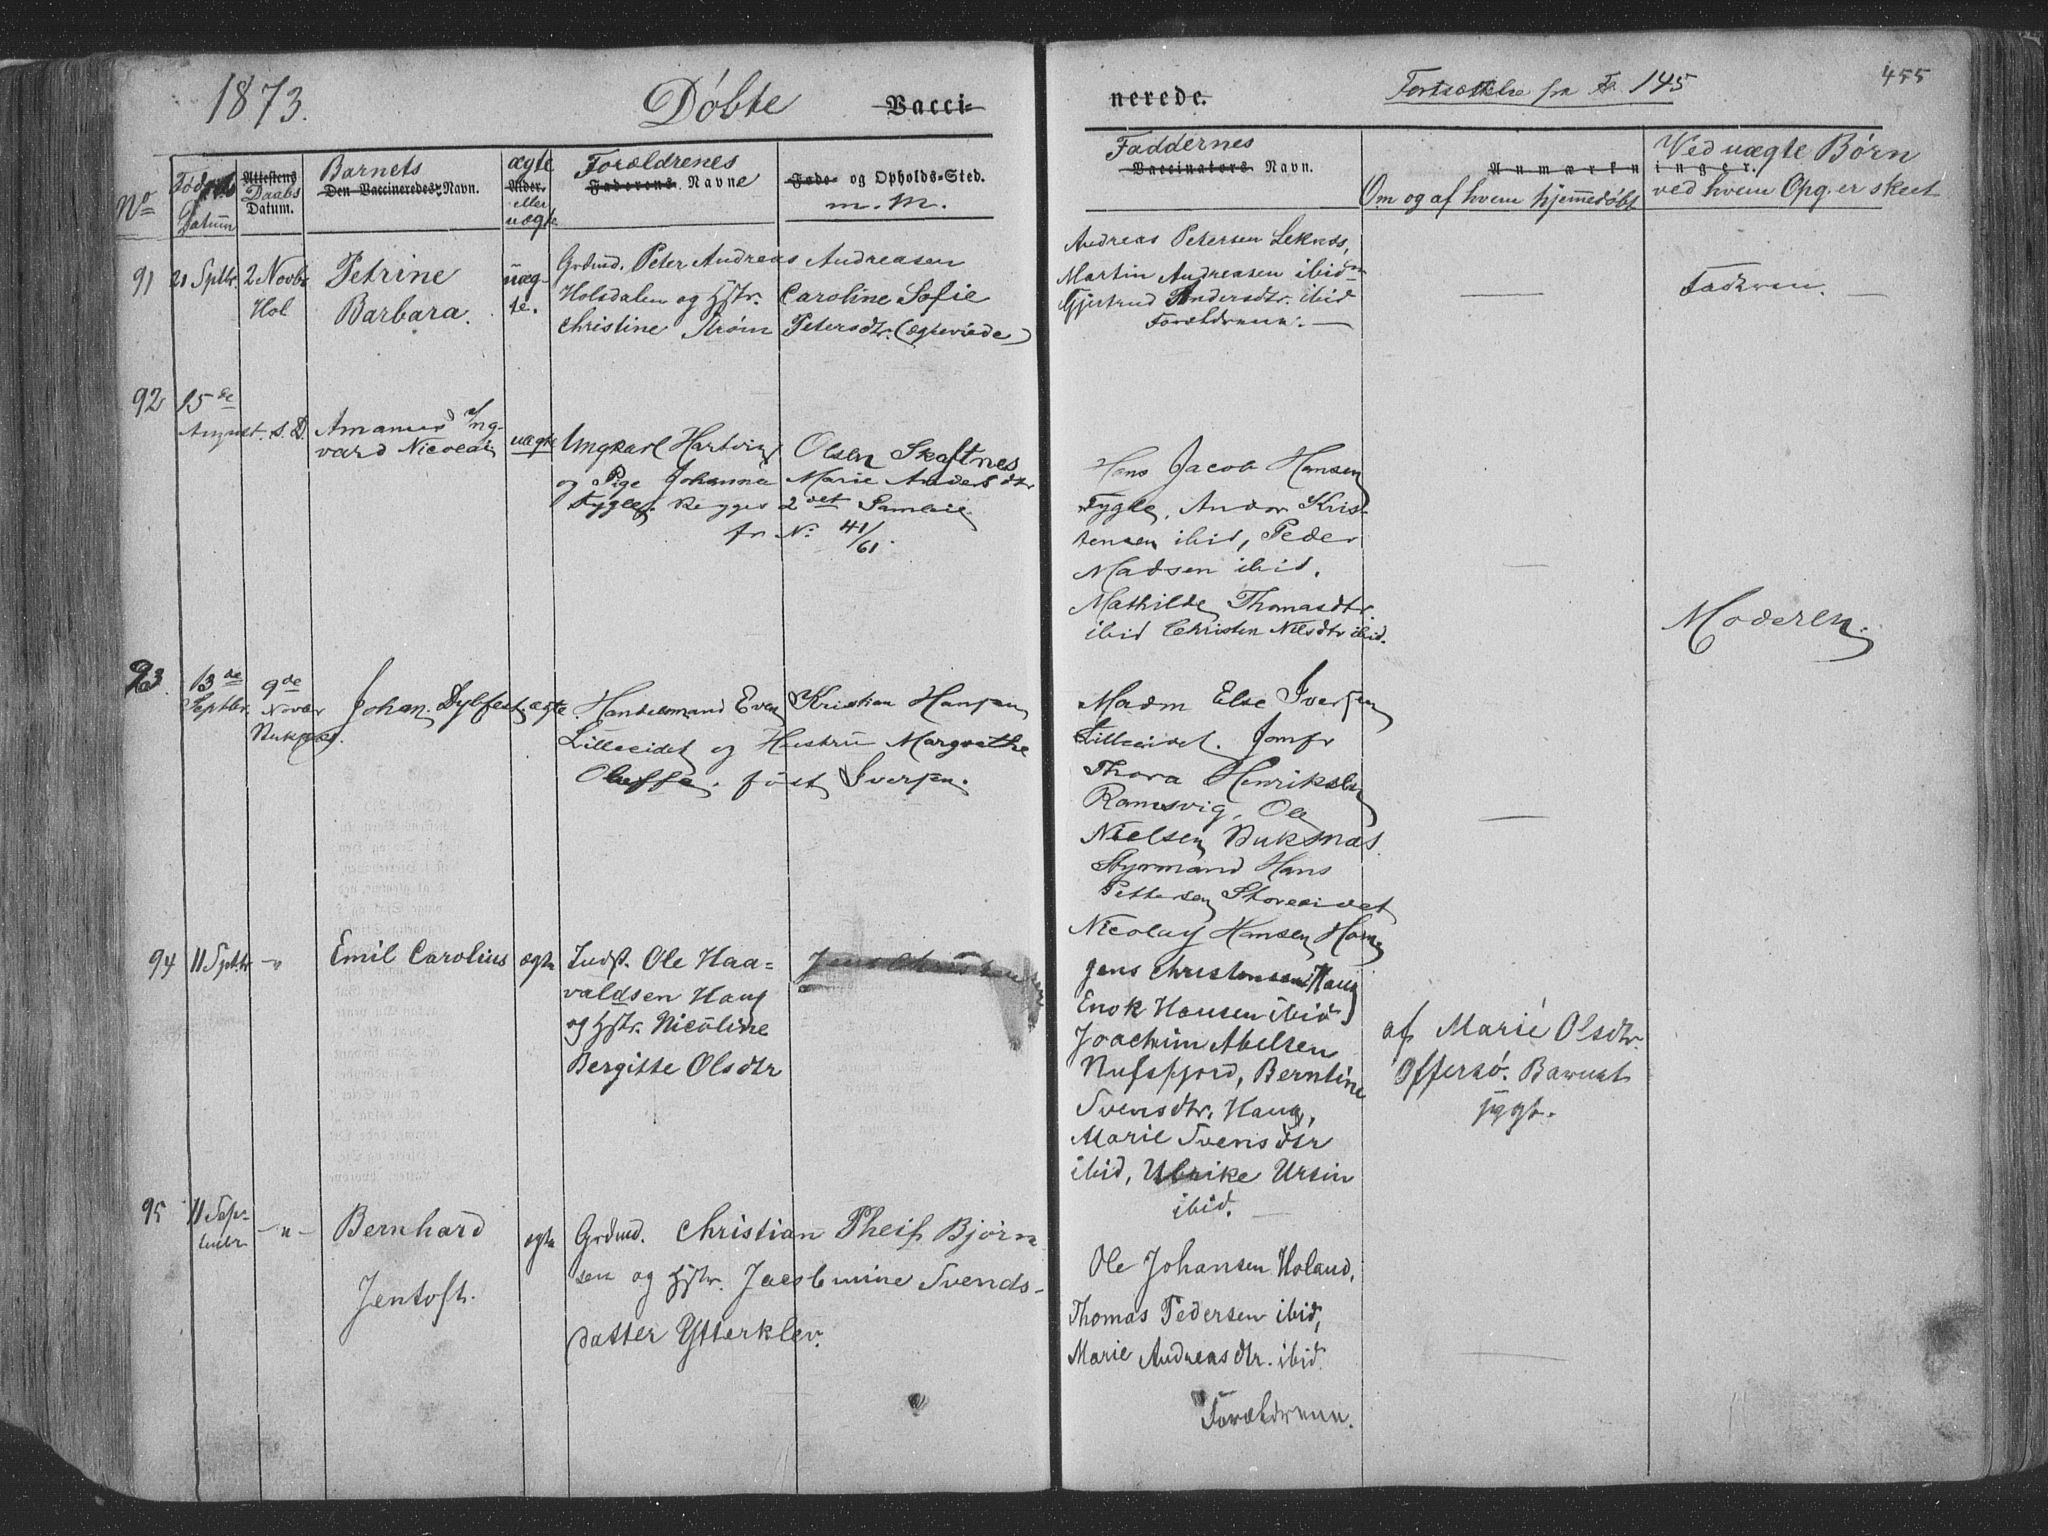 1873. Døbte Vacci-
nerede. Fortsættelse fra Fo 145 455
No
Fødsels
Datum
Attestens
Daabs
Datum.
Barnets
Den Vaccineredes Navn.
ægte
Alder.
eller
uægte
Forældrenes
Faderens Navne
Føde- og Opholds-Sted.
m. M.
Faddernes
Vaccinators Navn.
Anmærkn
Om og af hvem hjemmedøbt
Ved uægte Børn
inger.
ved hvem Opg. er skeet
91 21 Septbr. 2 Novbr
Hol
Petrine
Barbara.
uæg-
te.
Grdmd. Peter Andreas Andreasen
Holsdalen og Hstr. Caroline Sofie
Christine Strøm Petersdtr. (ægteviede)
Andreas Petersen Leknes,
Martin Andreasen ibidm
Gjertrud Andersdtr. ibid
Forældrene. —
—
Faderen. —
92 15de
August. s. D.
Amandus Ing-
vard Nicolai
uægte
Ungkarl Hartvig Olsen Skaftnes
og Pige Johanna Marie Andersdtr
Fygle. Begges 2det Samleie
fr No. 41/61.
Hans Jacob Hansen
Fygle, Andor Kris-
tensen ibid, Peder
Madsen ibid.
Mathilde Thomasdtr
ibid Christen Nilsdtr ibid.
—
Moderen.
93. 13de
Septbr.
9de
Novbr
Buksnes.
Johan Dybfest
ægte.
Handelsmand Even Kristian Hansen
Lilleeidet og Hustru Margrethe
Oluffa. født Iversen.
Madm Else Iversen
Lilleeidet. Jomfr
Thora Henriksen
Ramsvig, Ole
Nielsen Buksnæs.
Styrmand Hans
Pettersen Storeeidet
Nicolay Hansen Horn
—
94 11 Septbr. -"-
Emil Carolius
ægte
Indst. Ole Haa=
valdsen Haug
og Hstr. Nicoline
Bergitte Olsdtr
Jens Christensen
Jens Christensen Haug
Enok Hansen ibid
Joachim Abelsen
Nufsfjord, Berntine
Svensdtr. Haug,
Marie Svensdtr
ibid, Ulrike Ursin
ibid. —
af Marie Olsdtr.
Offersø. Barnet
sygt.
95 11 Sep-
tembr -"-
Bernhard
Jentoft.
egte
Grdmd. Christian Theis Bjørn
sen og Hstr. Jacobmine Svends-
datter Ytterklev.
Ole Johansen Holand,
Thomas Pedersen ibid,
Marie Andreasdtr. ibid.
Forældrene.
—